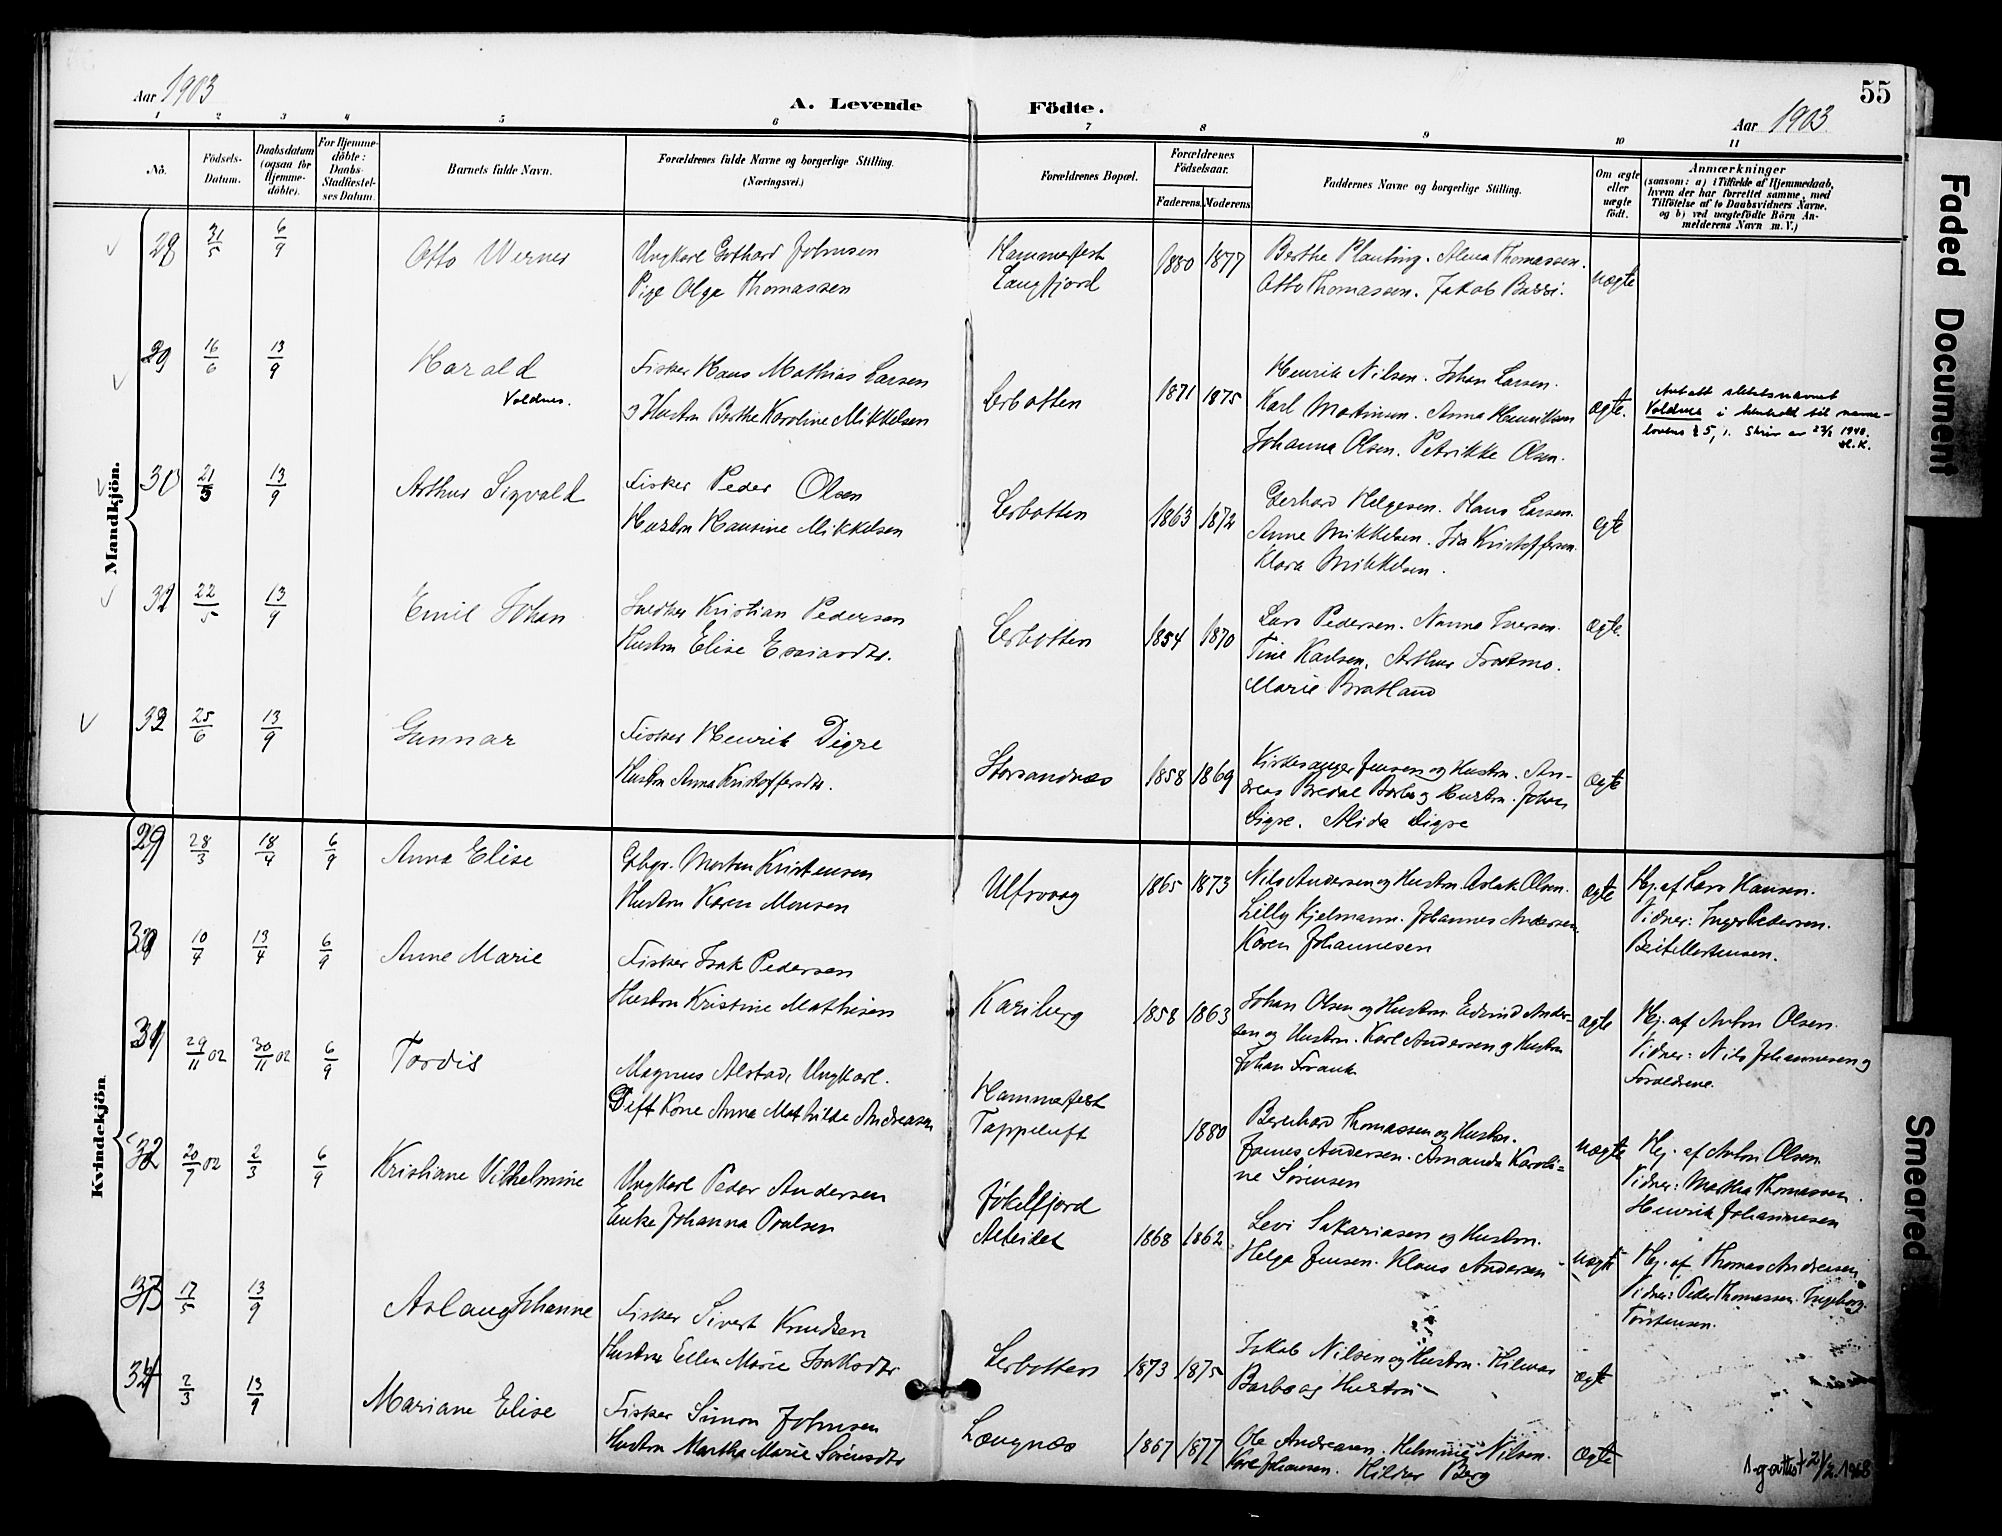 55
Aar 1903
A. Levende Födte.
Aar 1903
1 2 3 4 5 6 7 8 9 10 11
No.
Födsels-Datum.
Daabsdatum (ogsaa för Hjemme-döbte).
For Hjemme-döbte: Daabs-Stadfæstel-ses Datum.
Barnets fulde Navn.
Forældrenes fulde Navne og borgerlige Stilling.
(Næringsvei.)
Forældrenes Bopæl.
Forældrenes Födselsaar.
Faderens. Moderens.
Faddernes Navne og borgerlige Stilling.
Om ægte eller uægte födt.
Anmærkninger
(saasom: a) i Tilfælde af Hjemmedaab,
hvem der har forrettet samme, med
Tilföielse af to Daabsvidners Navne.
og b) ved uægtefödte Börn An-
melderens Navn m. V.)
Mandkjön.
28 31/5 6/9 Otto Werner Ungkarl Gothard Johnsen Hammerfest 1880 1877 Berthe Planting. Alma Thomassen. uægte
Pige Olga Thomassen Langfjord Otto Thomassen. Jakob Bassi.
29 16/6 13/9 Harald Fisker Hans Mathias Larsen Lerbotten 1871 1875 Henrik Nilsen. Johan Larsen. ægte. Antatt slektsnavnet
Voldnes. Hustru Berthe Karoline Mikkelsen Karl Martinsen. Anna Henriksen Voldnes i henhold til navne-
Johanna Olsen. Petrikke Olsen. lovens § 5, 1. Skriv av 23/8 1940.
H.K.
30 21/5 13/9 Arthur Sigvald Fisker Peder Olsen Lerbotten 1863 1872 Gerhard Helgesen. Hans Larsen. ægte
Hustru Hansine Mikkelsen Anne Mikkelsen. Ida Kristoffersen.
Klara Mikkelsen.
31 22/5 13/9 Emil Johan Snedker Kristian Pedersen Lerbotten 1854 1870 Lars Pedersen. Nanna Iversen. Ægte.
Hustru Elise Esaiasdtr. Tine Karlsen. Arthur Frostmo.
Marie Bratland
32 25/6 13/9 Gunnar Fisker Henrik Digre Storsandnæs 1858 1869 Kirkesanger Jensen og Hustru. An- Ægte
Hustru Anna Kristoffersdtr. dreas Bredal Barbo og Hustru. Johan
Digre. Alida Digre
Kvindekjön.
29 28/3 18/4 6/9 Anna Elise Gbgr. Morten Kristensen Ulfsvaag 1865 1873 Nils Andersen og Hustru Aslak Olsen. ægte Hj. af Lars Hansen.
Hustru Karen Monsen Lilly Kjelmann. Johannes Andersen. Vidner: Inger Pedersen.
Karen Johannesen Berit Mortensen.
30 10/4 13/4 6/9 Anne Marie Fisker Isak Pedersen Kariberg 1858 1863 Johan Olsen og Hustru Edvind Ander- ægte Hj. af Anton Olsen.
Hustru Kristine Mathisen sen og Hustru. Karl Andersen og Hustru Vidner: Nils Johannesen og
Johan Frank Forældrene.
31 29/11 02 30/11 02 6/9 Tordis Magnus Alstad, Ungkarl. Hammerfest 1880 Bernhard Thomassen og Hustru. uægte Hj. af Anton Olsen.
Gift Kone Anna Mathilde Andreasen Tappeluft James Andersen. Amanda Karoli- Vidner: Martha Thomassen.
ne Sørensen Henrik Johannesen
32 20/7 02 2/3 6/9 Kristiane Vilhelmine Ungkarl Peder Andersen Jøkelfjord 1868 1862 Levi Sakariasen og Hustru. uægte Hj. af Thomas Andreasen
Enke Johanna Poulsen Alteidet Helga Jensen. Klaus Andersen Vidner: Peder Thomassen. Ingeborg
Torstensen.
33 17/5 13/9 Aslaug Johanne Fisker Sivert Knudsen Lerbotten 1873 1875 Jakob Nilsen og Hustru. Hilmar ægte
Hustru Ellen Marie Isaksdtr Barbo og Hustru
34 2/3 13/9 Mariane Elise Fisker Simon Johnsen Langnæs 1867 1877 Ole Andreasen. Helmine Nilsen. Ægte
Hustru Martha Marie Sørensdtr Kare Johansen. Hilder Berg
1. g. attest 21/2. 1968
Faded Document
Smeared